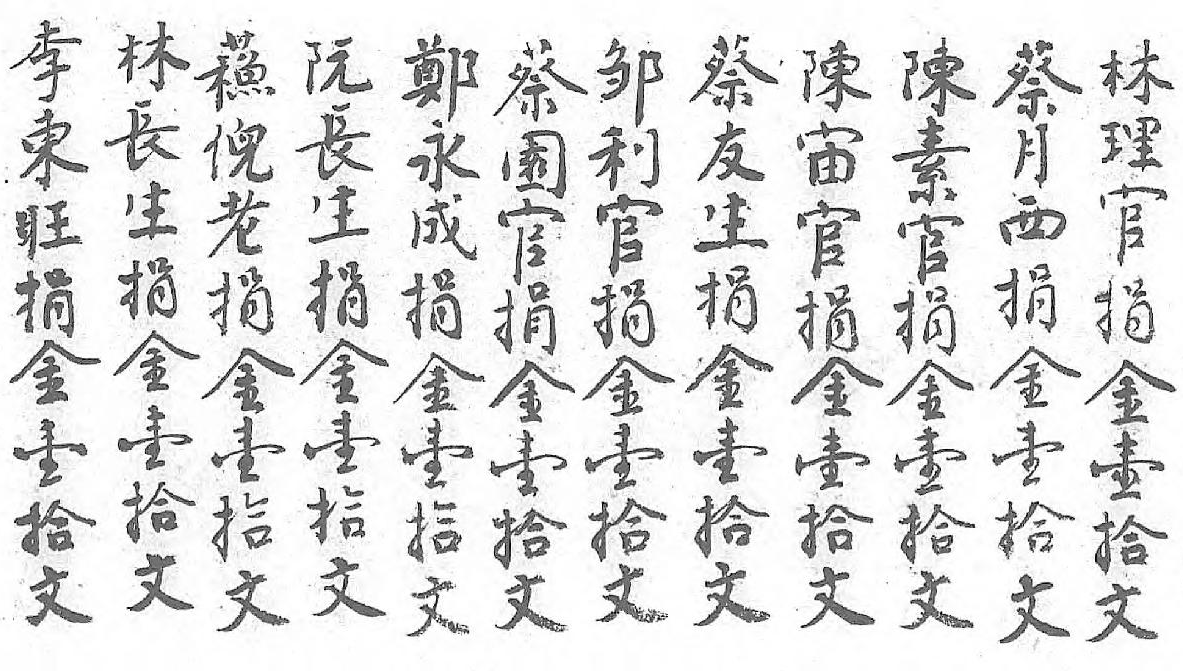 林理官捐金壹拾文
蔡月西捐金壹拾文
陳素官捐金壹拾文
陳宙官捐金壹拾文
蔡友生捐金壹拾文
邹利官捐金壹拾文
蔡園官捐金壹拾文
鄭永成捐金壹拾文
阮長生捐金壹拾文
蘓倪老捐金壹拾文
林長生捐金壹拾文
李東旺捐金壹拾文